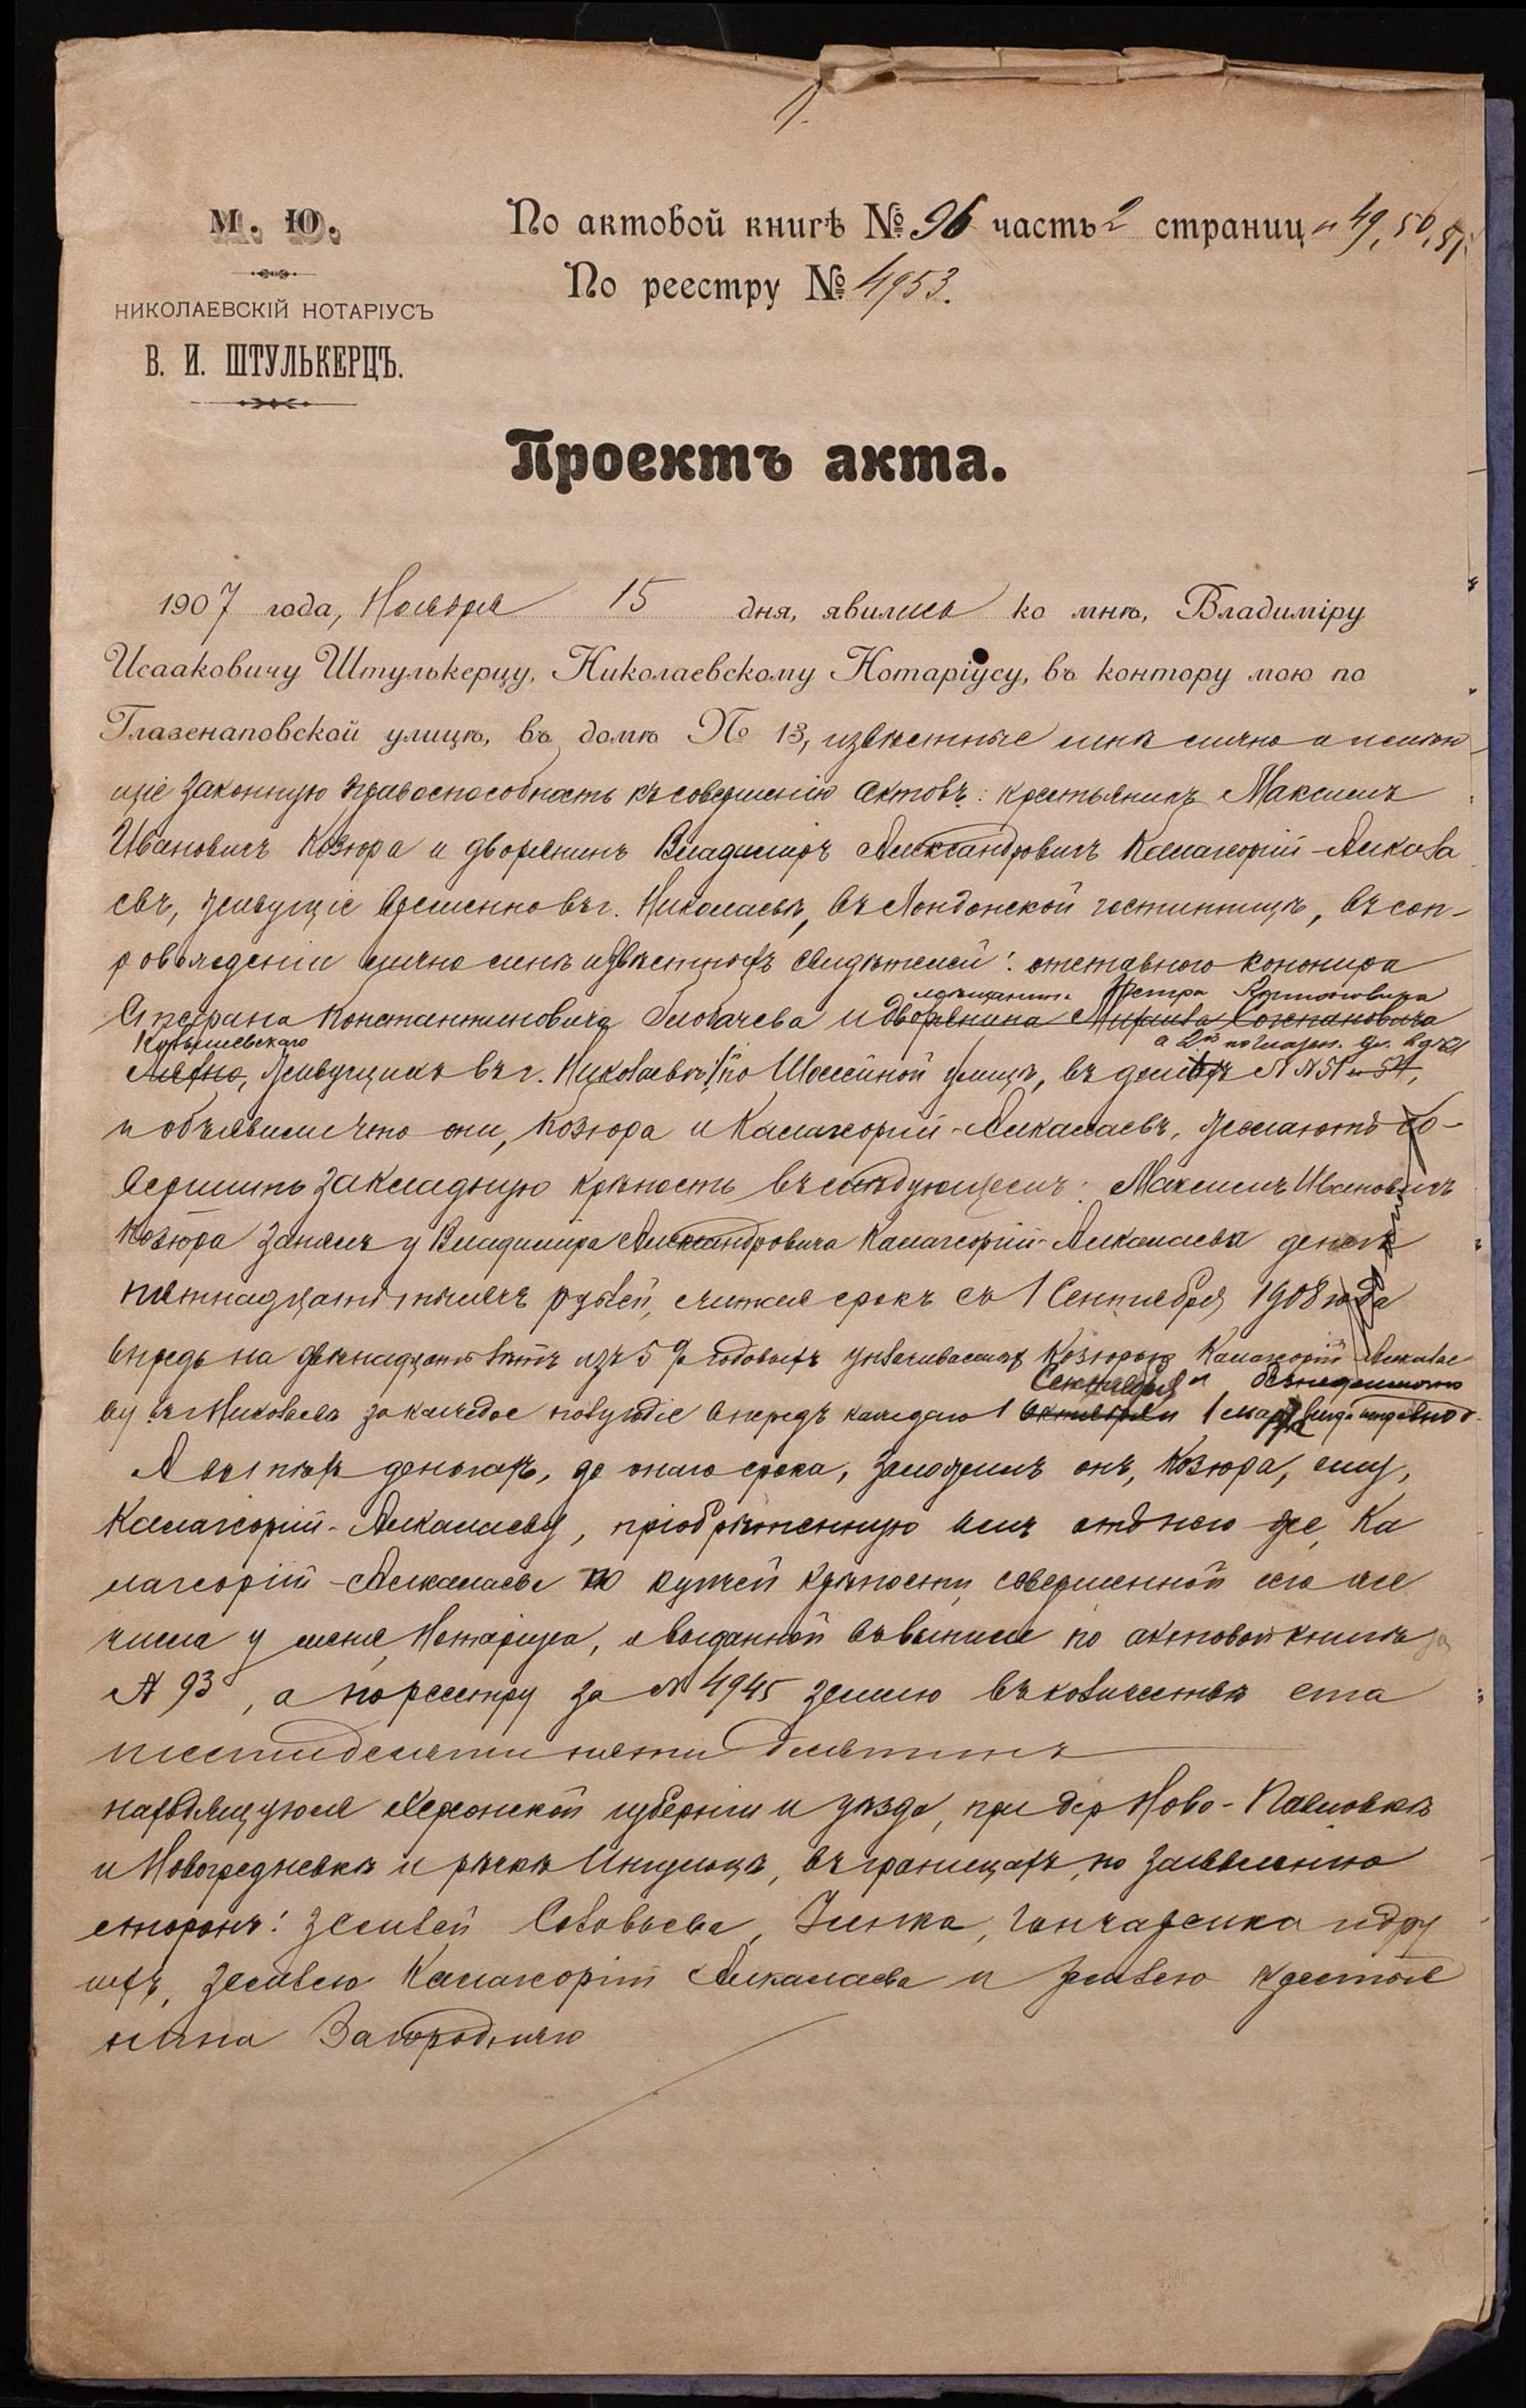 1.
М. Ю.
По актовой книгѣ № 96 часть 2 страниц 49, 50, 51.
По реестру № 4953.
НИКОЛАЕВСКІЙ НОТАРІУСЪ
В. И. ШТУЛЬКЕРЦЪ.
Проектъ акта.
1907 года, Ноября 15 дня, явились ко мнѣ, Владиміру
Исааковичу Штулькерцу, Николаевскому Нотаріусу, въ контору мою по
Глазенаповской улицѣ, въ домѣ № 13, извѣстные мнѣ лично и имѣю-
щіе законную правоспособность къ совершенію актовъ: крестьянинъ Максимъ
Ивановичъ Козюра и дворянинъ Владиміръ Александровичъ Калагеоргій-Алкала
евъ, живущіе временно въ г. Николаевѣ, въ Лондонской гостинницѣ, въ соп-
ровожденіи лично мнѣ извѣстныхъ свидѣтелей: отставного
мѣщанина Петра
Константиновича Глобачева и дворянина
а 2й по Глазен. ул. въ д. №
живущихъ въ г. Николаевѣ по Шоссейной улицѣ, въ домахъ № 51 и 54,
и объявили что они, Козюра и Калагеоргій-Алкалаевъ, желаютъ со-
вершить закладную крѣпость въ слѣдующемъ: Максимъ Ивановичъ
Козюра занялъ у Владиміра Александровича Калагеоргій-Алкалаева денегъ
пятнадцать тысячъ рублей, считая срокъ съ 1 Сентября 1908 года
впредь на двѣнадцать лѣтъ изъ 5% годовыхъ уплачиваемыхъ Козюрою Калагеоргій-Алкалае
Сентября и
ву въ Николаевѣ за каждое полугодіе впередъ каждаго 1 Октября и 1 Марта
А въ тѣхъ деньгахъ, до онаго срока, заложилъ онъ, Козюра, ему,
Калагеоргій-Алкалаеву, пріобрѣтенную имъ отъ него же, Ка
лагеоргій-Алкалаева по купчей крѣпости, совершенной сего же
числа у меня, Нотаріуса, и выданной въ выписи по актовой книгѣ за
№ 93, а по реестру за № 4945 землю въ количествѣ ста
шестидесяти пяти десятинъ
находящуюся Херсонской губерніи и уѣзда, при дер Ново-Павловкѣ
и Новогредневкѣ и рѣчкѣ Ингульцѣ, въ границахъ, по заявленію
сторонъ: землей Соловьева, Гончаренка и дру
ихъ, землею Калагеоргій Алкалаева и землею крестья
нина Загородняго